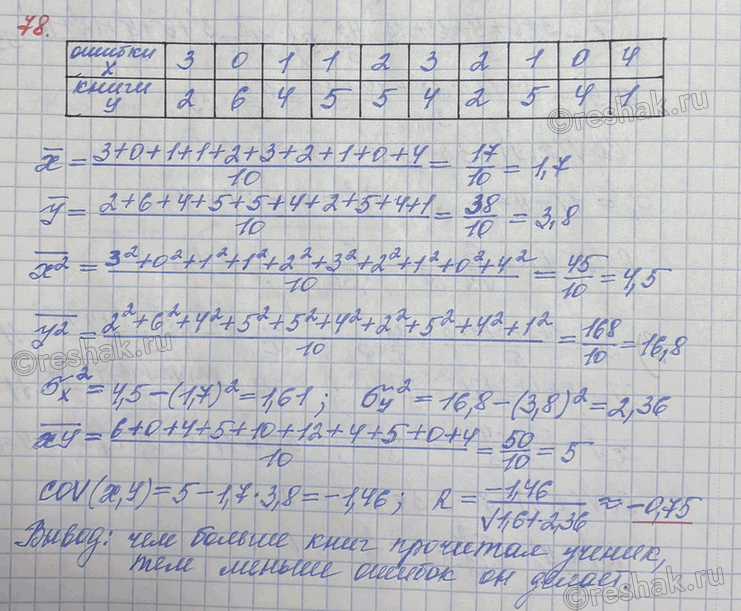 78.
ошибки x 3 0 1 1 2 3 2 1 0 4
книги y 2 6 4 5 5 4 2 5 4 1
x̄ = (3+0+1+1+2+3+2+1+0+4)/10 = 17/10 = 1,7
ȳ = (2+6+4+5+5+4+2+5+4+1)/10 = 38/10 = 3,8
x̄² = (3²+0²+1²+1²+2²+3²+2²+1²+0²+4²)/10 = 45/10 = 4,5
ȳ² = (2²+6²+4²+5²+5²+4²+2²+5²+4²+1²)/10 = 168/10 = 16,8
σx² = 4,5−(1,7)² = 1,61; σy² = 16,8−(3,8)² = 2,36
x̄ȳ = (6+0+4+5+10+12+4+5+0+4)/10 = 50/10 = 5
cov(x,y) = 5−1,7·3,8 = −1,46; R = −1,46/√1,61·2,36 ≈ −0,75
Вывод: чем больше книг прочитал ученик,
тем меньше ошибок он делает.
reshak.ru
reshak.ru
reshak.ru
reshak.ru